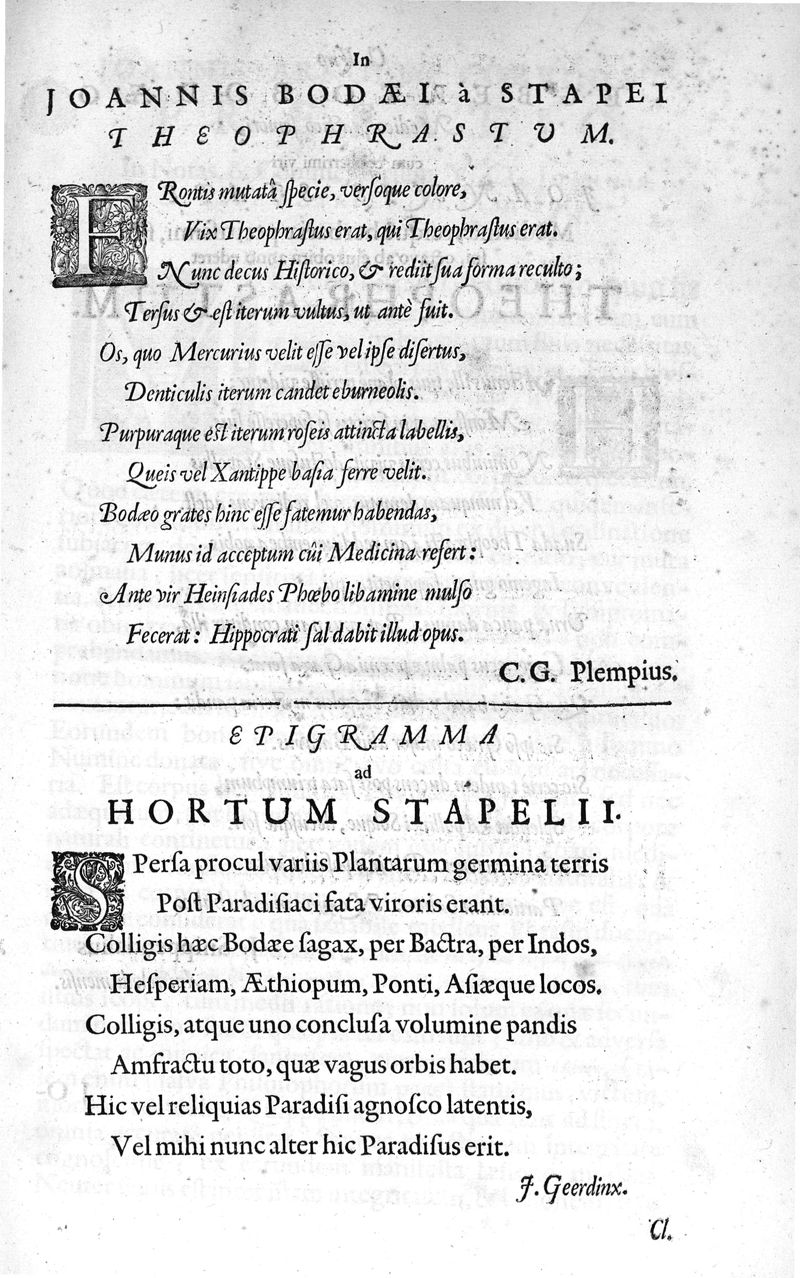 In
JOANNIS BODÆI à STAPEI
THEOPHRASTUM.
FRontis mutatâ ſpecie, verſoque colore,
Vix Theophraſtus erat, qui Theophraſtus erat.
Nunc decus Hiſtorico, & rediit ſua forma reculto;
Terſus & eſt iterum vultus, ut antè fuit.
Os, quo Mercurius velit eſſe vel ipſe diſertus,
Denticulis iterum candet eburneolis.
Purpuraque eſt iterum roſeis attincta labellis,
Queis vel Xantippe baſia ferre velit.
Bodæo grates hinc eſſe fatemur habendas,
Munus id acceptum cûi Medicina refert:
Ante vir Heinſiades Phœbo libamine mulſo
Fecerat: Hippocrati ſal dabit illud opus.
C.G. Plempius.
EPIGRAMMA
ad
HORTUM STAPELII.
SPerſa procul variis Plantarum germina terris
Poſt Paradiſiaci fata viroris erant.
Colligis hæc Bodæe ſagax, per Bactra, per Indos,
Heſperiam, Æthiopum, Ponti, Aſiæque locos.
Colligis, atque uno concluſa volumine pandis
Amfractu toto, quæ vagus orbis habet.
Hic vel reliquias Paradiſi agnoſco latentis,
Vel mihi nunc alter hic Paradiſus erit.
J. Geerdinx.
Cl.